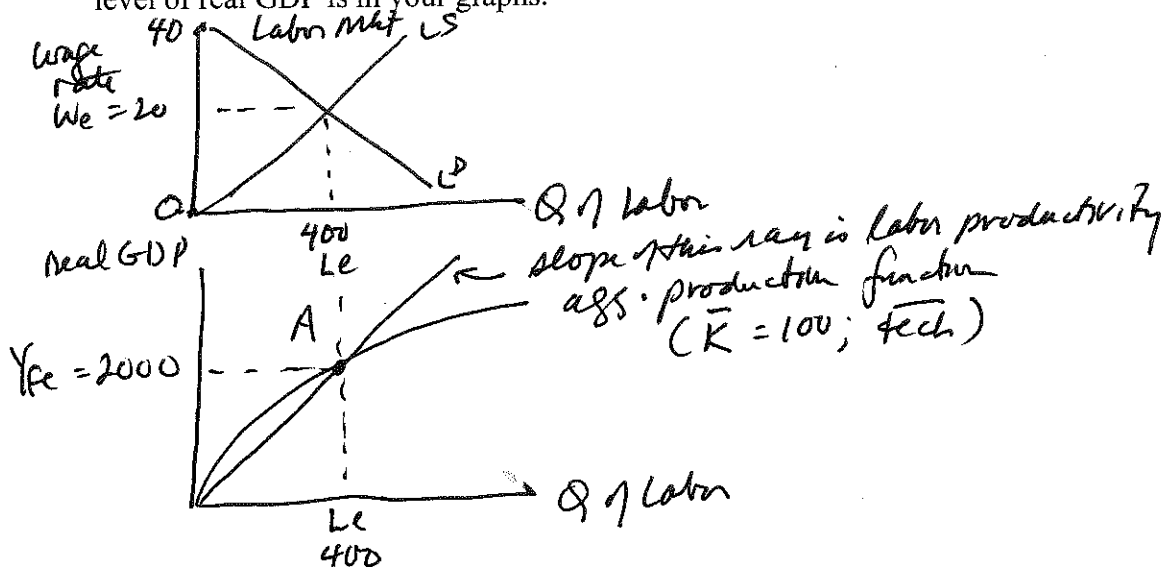 level of real GDP is in your graphs.
40 Labor Mkt LS
wage
rate
We = 20
LD
0 Q of Labor
400
Le
Real GDP
slope of this ray is labor productivity
agg. production function
(K̄ = 100; t̅e̅c̅h̅)
A
YFe = 2000
Q of Labor
Le
400